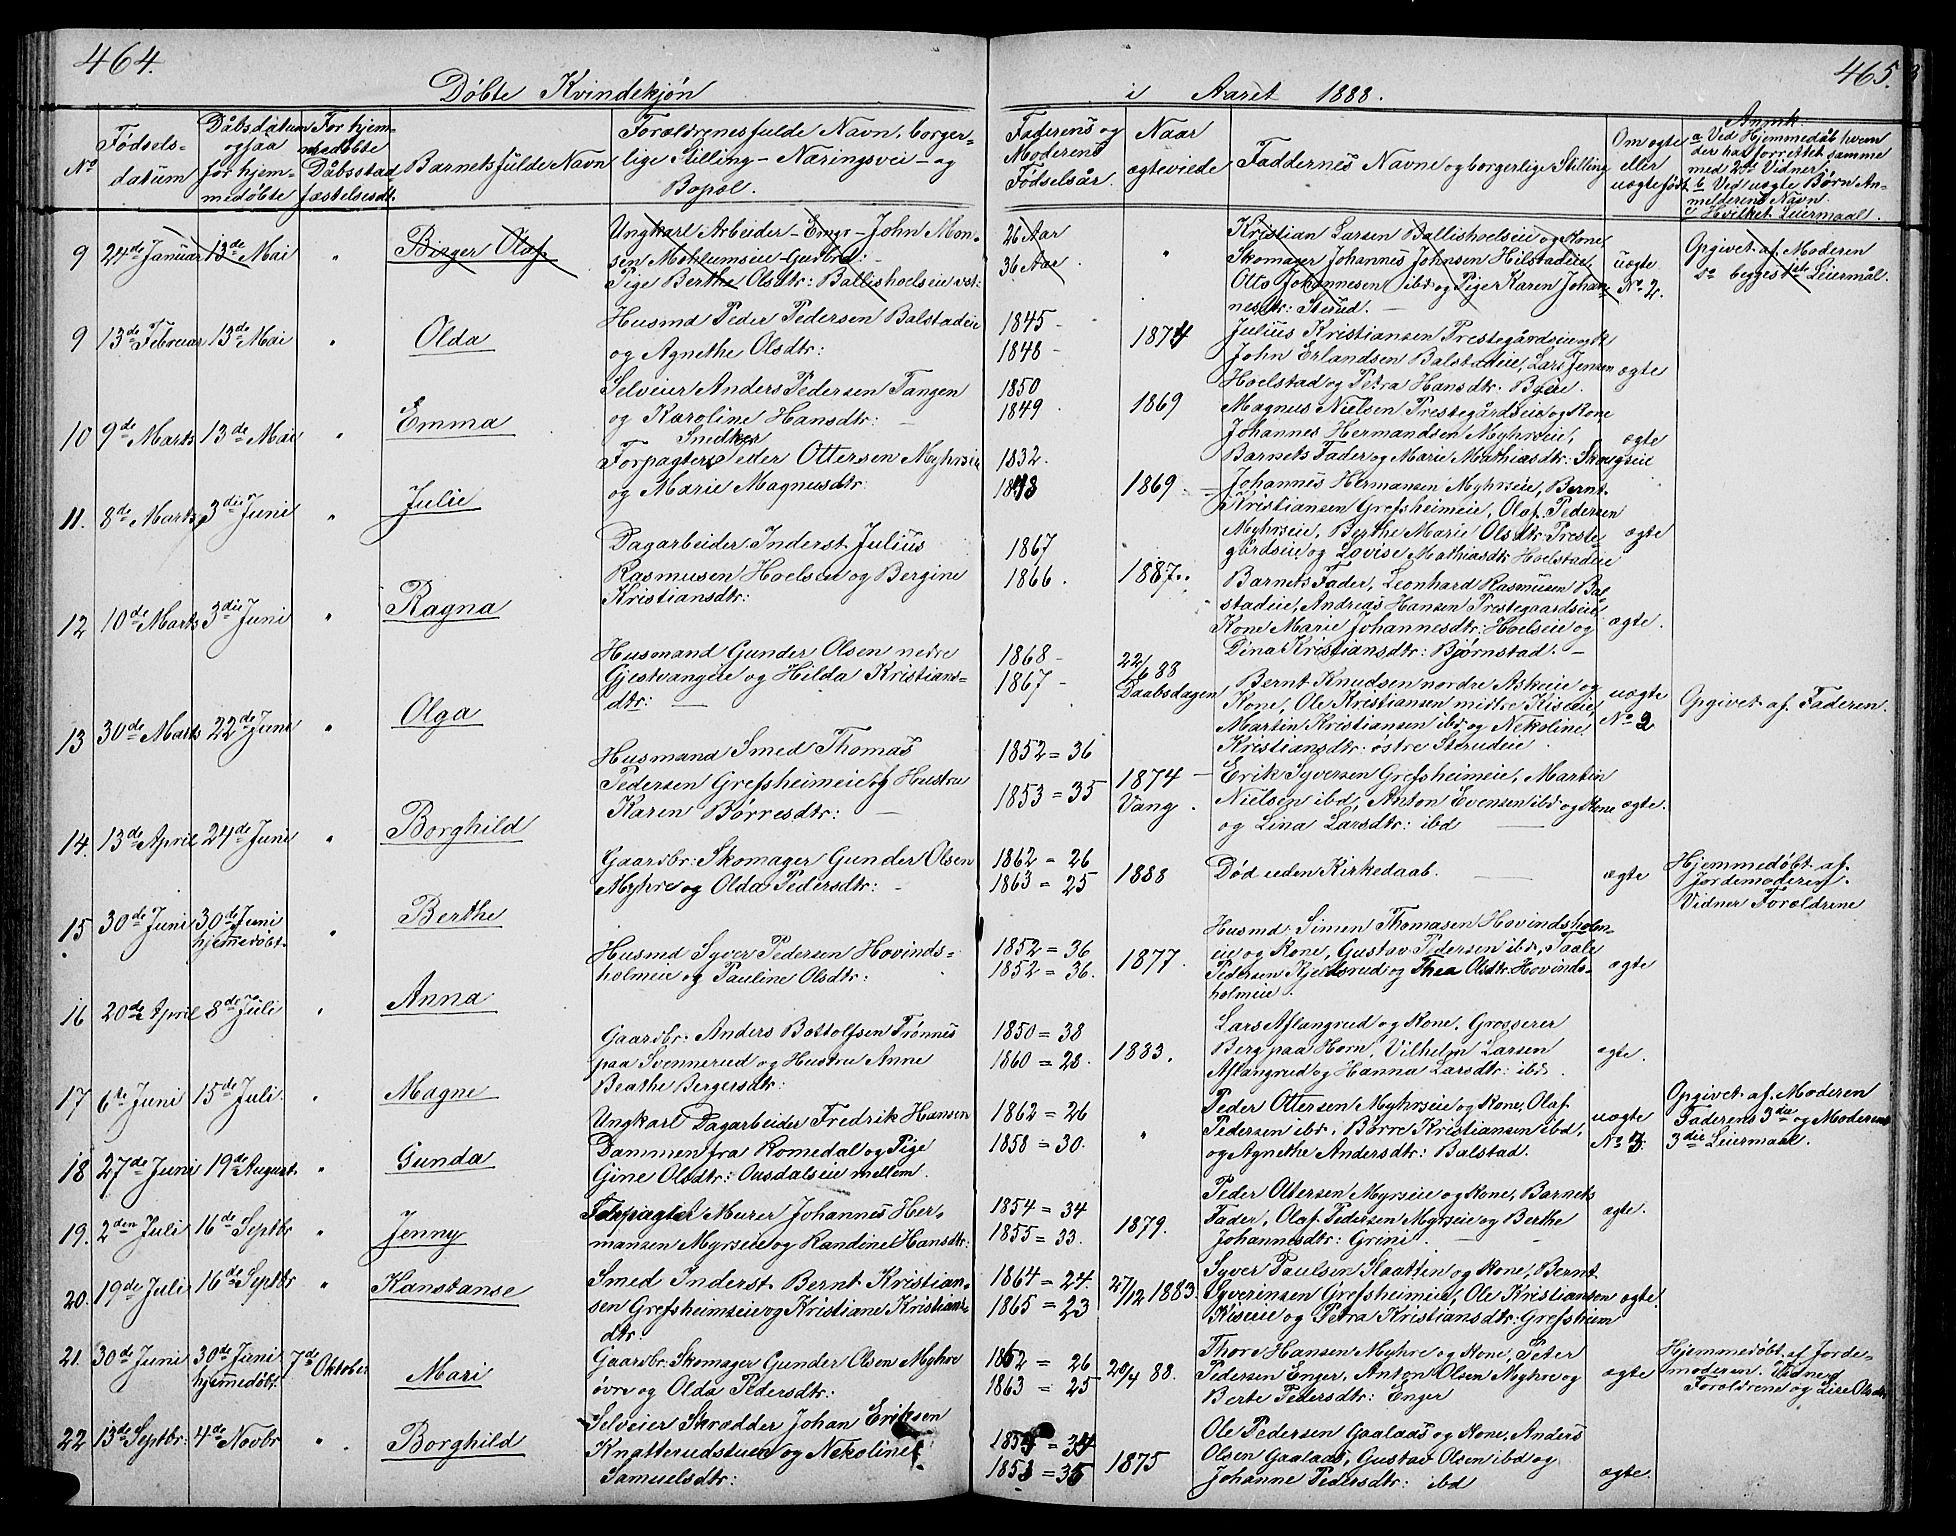 464.
Døbte Kvindekjøn
i Aaret 1888.
465.
No
Fødsels-
datum
Dåbsdatum
ogsaa
for hjem-
medøbte
For hjem-
medøbte
Dåbsstad
fæstelsesdt.
Barnets fulde Navn
Forældrenes fulde Navn, borger-
lige Stilling - Næringsvei - og
Bopæl.
Faderens og
Moderens
Fødselsår.
Naar
ægteviede
Faddernes Navne og borgerlige Stilling
Om ægte
eller
uægte født.
Anmk:
a Ved Hjemmedåb hvem
der har forrettet samme
med 2de Vidner.
b Ved uægte Børn An-
melderens Navn.
c Hvilket Leiermaal.
9 24de Januar 13de Mai " Birger Olaf
Ungkarl Arbeider - Emgr - John Mon-
sen Mohlumseie Gustra:
Pige Berthe Olsdtr: Ballishoelseie vst:
26 Aar
36 Aar
"
Kristian Larsen Ballishoelseie og Kone,
Skomager Johannes Johnsen Hilstadeie,
Otto Johannesen ibd og Pige Karen Johan-
nesdtr: Sterud. —
uægte
No 2.
Opgivet af Moderen
do begges 1ste Leiermål.
9 13de Februar 13de Mai " Olda
Husmd Peder Pedersen Balstadeie
og Agnethe Olsdtr:
1845 -
1848 -
1874
Julius Kristiansen Prestegårdseie og K
John Erlandsen Balstadeie, Lars Jensen
Hoelstad og Petra Hansdtr. Byeie.
ægte
10 9de Marts 13de Mai " Emma
Selveier Anders Pedersen Tangen
og Karoline Hansdtr: —
1850
1849
1869
Magnus Nielsen Prestegårdseie og Kone,
Johannes Hermandsen Myhrseie,
Barnets Fader og Marie Mathiasdtr. Skougseie
ægte
11. 8de Marts 3die Juni " Julie
Smedker
Forpagter Peder Ottersen Myhrseie
og Marie Magnusdtr:
1832.
1843
1869 -
Johannes Hermansen Myhrseie, Bernt
Kristiansen Grefsheimeie, Olaf Pedersen
Myhrseie, Berthe Marie Olsdtr. Preste-
gårdseie og Lovise Mathiasdtr. Hoelstadeie
ægte
12 10de Marts 3die Juni " Ragna
Dagarbeider Inderst Julius
Rasmusen Hoelseie og Bergine
Kristiansdtr:
1867
1866.
1887.
Barnets Fader, Leonhard Rasmusen Bal-
stadeie, Andreas Hansen Prestegaardseie
Kone Marie Johannesdtr: Hoelseie og
Dina Kristiansdtr: Bjørnstad. —
ægte.
13 30de Marts 22de Juni " Olga
Husmand Gunder Olsen nedre
Gjestvangeie og Hilda Kristians-
dtr: —
1868 -
1867 -
22/6 88
Daabsdagen
Bernt Knudsen nordre Askeie og
Kone, Ole Kristiansen midtre Kiseie,
Martin Kristiansen ibd og Nekoline
Kristiansdtr: østre Sterudeie.
uægte
No 2
Opgivet af Faderen.
14. 13de April 24de Juni " Borghild
Husmand Smed Thomas
Pedersen Grefsheimeie og Hustru
Karen Børresdtr: —
1852 = 36
1853 = 35
1874 -
Vang.
Erik Syversen Grefsheimeie, Martin
Nielsen ibd, Anton Evensen ibd og Kone
og Lina Larsdtr: ibd —
ægte.
15 30de Juni 30de Juni
hjemmedøbt. " Berthe
Gaardbr: Skomager Gunder Olsen
Myhre og Olda Pedersdtr: -
1862 = 26
1863 = 25
1888
Død uden Kirkedaab. —
ægte
Hjemmedøbt af
Jordemoderen.
Vidner Forældrene
16 20de April 8de Juli " Anna
Husmd Syver Pedersen Hovinds-
holmeie og Pauline Olsdtr:
1852 = 36
1852 = 36.
1877.
Husmd: Simen Thomasen Hovindsholm-
eie og Kone, Gustav Pedersen ibd, Taale
Pedersen Kjelsrud og Thea Olsdtr: Hovinds-
holmeie.
ægte
17 6te Juni 15de Juli " Magne
Gaardbr. Anders Bottolfsen Frønnes
paa Svennerud og Hustru Anne
Beathe Bergersdtr:
1850 = 38
1860 = 28.
1883.
Lars Aflangrud og Kone, Grosserer
Berg paa Horn, Vilhelm Larsen
Aflangrud og Hanna Larsdtr: ibd.
ægte.
18 27de Juni 19de August. " Gunda
Ungkarl Dagarbeider Fredrik Hansen
Dammen fra Romedal og Pige
Gine Olsdtr: Ousdalseie mellem.
1862 = 26
1858 = 30.
"
Peder Ottersen Myhrseie og Kone, Olaf
Pedersen ibd, Børre Kristiansen ibd,
og Agnethe Andersdtr: Balstad.
uægte
No 3.
Opgivet af Moderen
Faderens 3die og Moderens
3die Leiermaal.
19. 2den Juli 16de Septbr " Jenny
Forpagter Murer Johannes Her-
mansen Myrseie og Randine Hansdtr:
1854 = 34
1855 = 33.
1879.
Peder Ottersen Myrseie og Kone, Barnets
Fader, Olaf Pedersen Myrseie og Berthe
Johannesdtr: Grini. —
ægte.
20. 19de Juli 16de Septbr " Konstanse
Smed Inderst Bernt Kristian-
sen Grefsheimseie og Kristiane Kristians-
dtr:
1864 = 24.
1865 = 23
27/12 1883.
Syver Paulsen Kaatten og Kone, Bernt
Syverinsen Grefsheimeie, Ole Kristiansen
Kiseie og Petra Kristiansdtr: Grefsheim
ægte.
21. 30de Juni 30de Juni
hjemmedøbt. 7de Oktober Mari
Gaardbr: Skomager Gunder Olsen Myhre
øvre og Olda Pedersdtr:
1862 = 26
1863 = 25
20/4 88.
Thor Hansen Myhre og Kone, Peter
Pedersen Enger, Anton Olsen Myhre og
Berte Pedersdtr: Enger
ægte
Hjemmedøbt af Jorde-
moderen. Vidner
Forældrene og Lise Olsdtr
22 13de Septbr: 4de Novbr " Borghild
Selveier Skrædder Johan Eriksen
Knatterudstuen og Nekoline
Samuelsdtr:
1854 = 34
1853 = 35
1875
Ole Pedersen Gaalaas og Kone, Anders
Olsen Gaalaas, Gustav Olsen ibd og
Johanne Pedersdtr: ibd
ægte.